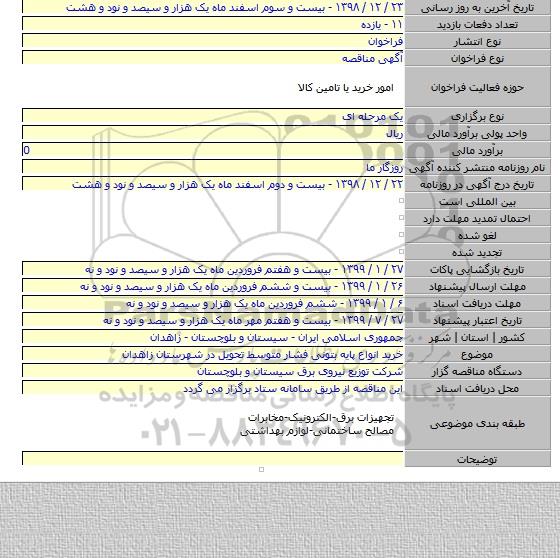 تاریخ آخرین به روز رسانی ۲۳ / ۱۲ / ۱۳۹۸ - بیست و سوم اسفند ماه یک هزار و سیصد و نود و هشت
تعداد دفعات بازدید ۱۱ - یازده
نوع انتشار فراخوان
نوع فراخوان آگهی مناقصه
حوزه فعالیت فراخوان امور خرید یا تامین کالا
نوع برگزاری یک مرحله ای
واحد پولی برآورد مالی ریال
برآورد مالی 0
نام روزنامه منتشر کننده آگهی روزگار ما
تاریخ درج آگهی در روزنامه ۲۲ / ۱۲ / ۱۳۹۸ - بیست و دوم اسفند ماه یک هزار و سیصد و نود و هشت
بین المللی است
احتمال تمدید مهلت دارد
لغو شده
تجدید شده
تاریخ بازگشایی پاکات ۲۷ / ۱ / ۱۳۹۹ - بیست و هفتم فروردین ماه یک هزار و سیصد و نود و نه
مهلت ارسال پیشنهاد ۲۶ / ۱ / ۱۳۹۹ - بیست و ششم فروردین ماه یک هزار و سیصد و نود و نه
مهلت دریافت اسناد ۶ / ۱ / ۱۳۹۹ - ششم فروردین ماه یک هزار و سیصد و نود و نه
تاریخ اعتبار پیشنهاد ۲۷ / ۷ / ۱۳۹۹ - بیست و هفتم مهر ماه یک هزار و سیصد و نود و نه
کشور | استان | شهر جمهوری اسلامی ایران - سیستان و بلوچستان - زاهدان
موضوع خرید انواع پایه بتونی فشار متوسط تحویل در شهرستان زاهدان
دستگاه مناقصه گزار شرکت توزیع نیروی برق سیستان و بلوچستان
محل دریافت اسناد این مناقصه از طریق سامانه ستاد برگزار می گردد
طبقه بندی موضوعی تجهیزات برق-الکترونیک-مخابرات
مصالح ساختمانی-لوازم بهداشتی
توضیحات
پایگاه اطلاع رسانی مناقصه و مزایده
۰۲۱-۸۸۳۴۹۶۷۰-۵